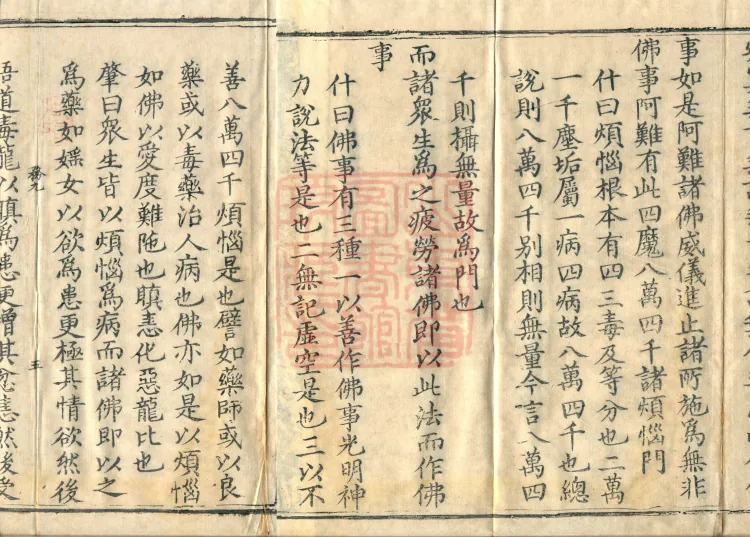 事如是阿難諸佛威儀進止諸所施爲無非
佛事阿難有此四魔八萬四千諸煩惱門
什曰煩惱根本有四三毒及等分也二萬
一千塵垢屬一病四病故八萬四千也總
說則八萬四千别相則無量今言八萬四
千則攝無量故爲門也
而諸衆生爲之疲勞諸佛即以此法而作佛
事
什曰佛事有三種一以善作佛事光明神
力說法等是也二無記虛空是也三以不
善八萬四千煩惱是也譬如藥師或以良
藥或以毒藥治人病也佛亦如是以煩惱
如佛以愛度難陁也瞋恚化惡龍比也
肇曰衆生皆以煩惱爲病而諸佛即以之
爲藥如婬女以欲爲患更極其情欲然後
悟道毒龍以瞋爲患更增其忿恚然後受